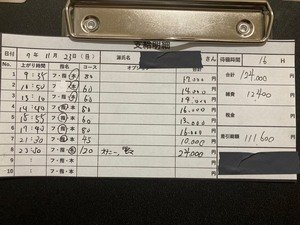 支給明細
日付 9年 11月 23日 (日) 源氏名 さん 待機時間 16 H
No. 上がり時間 指名 コース オプション 合計 124,000 円
1 フ・指・本 80 17,000 円
2 10:50 フ・指・本 60 14,000 円 雑費 12400 円
3 フ・指・本 60 円
4 14:40 フ・指・本 80 16,000 円 税金 円
5 15:55 フ・指・本 60 13,000 円
6 フ・指・本 80 16,000 円 差引総額 111,600 円
7 21:30 フ・指・本 45 10,000 円
8 23:50 フ・指・本 120 24,000 円
9 : フ・指・本 円
10 : フ・指・本